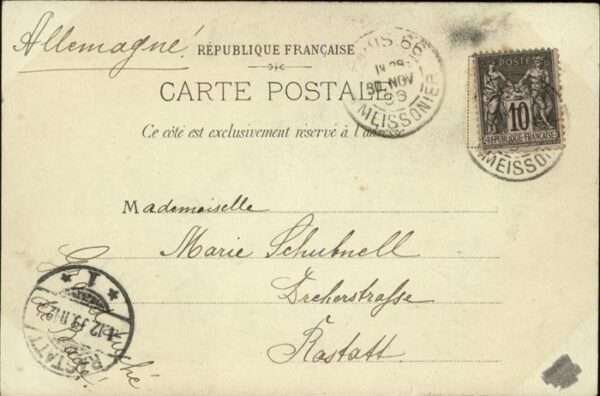 Allemagne!
RÉPUBLIQUE FRANÇAISE
CARTE POSTALE
Ce côté est exclusivement réservé à l'adresse
PARIS. 66
30 NOV
99
MEISSONIER
POSTE
10
REPUBLIQUE FRANÇAISE
MEISSONI
Mademoiselle
Marie Schubnell
Dreherstrasse
Rastatt.
Grand Duché
de Bade!
1
1.12.99